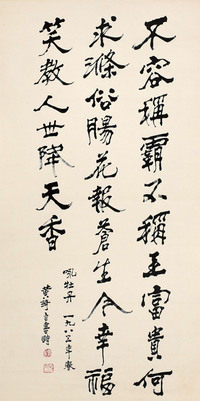 不容稱霸不稱王富貴何
求滌俗腸花報蒼生今幸福
笑教人世降天香
吼牡丹 一九八三年春
黃